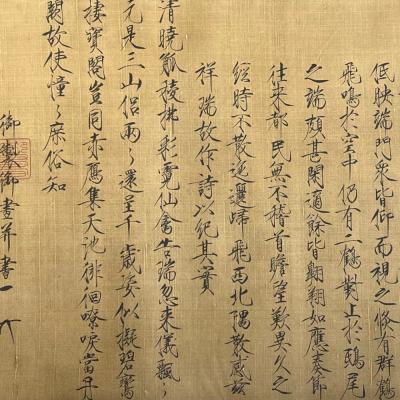 低映端門眾皆仰而視之倏有群鶴
飛鳴於空中仍有二鶴對止於鴟尾
之端頗甚閑適餘皆翱翔如應奏節
往來都民無不稽首瞻望歎異久之
經時不散迤邐歸飛西北隅散感茲
祥瑞故作詩以紀其實
清曉觚稜拂彩霓仙禽告瑞忽來儀飄〻
元是三山侶兩〻還呈千歲姿似擬碧鸞
棲寶閣豈同赤鴈集天池徘徊嘹唳當丹
闕故使憧〻庶俗知
御製御畫并書